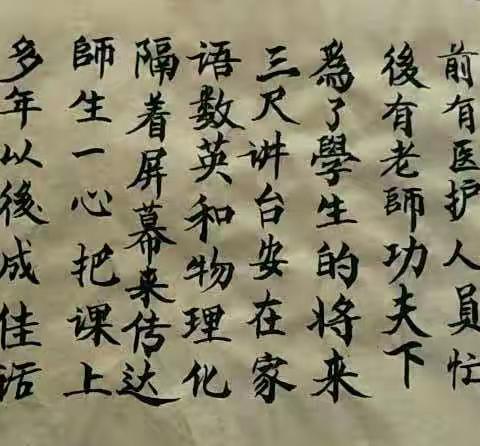 前有医护人員忙
後有老師功夫下
為了學生的将来
三尺讲台安在家
语数英和物理化
隔着屏幕来传达
師生一心把课上
多年以後成佳话